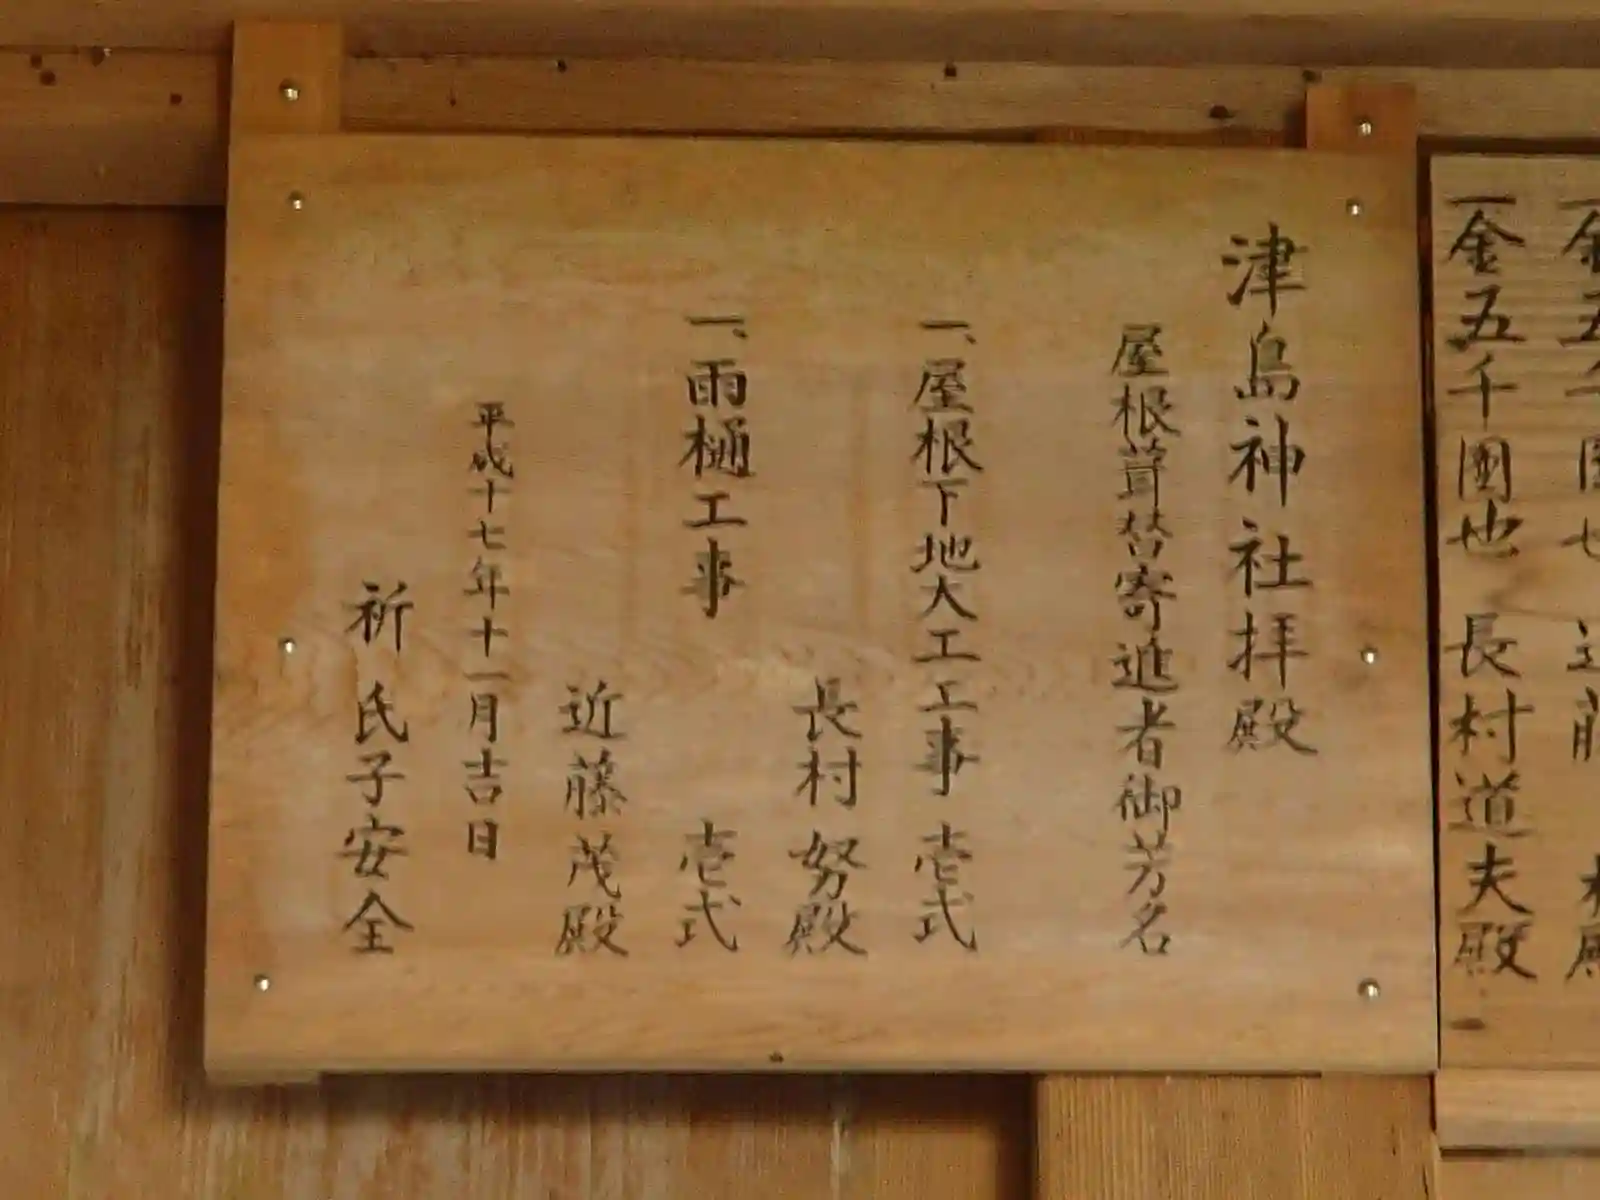 金五千圓也 長村道夫殿
津島神社拝殿
屋根葺替寄進者御芳名
一、屋根下地大工工事 壱式
長村 努殿
一、雨樋工事 壱式
近藤茂殿
平成十七年十一月吉日
祈 氏子安全